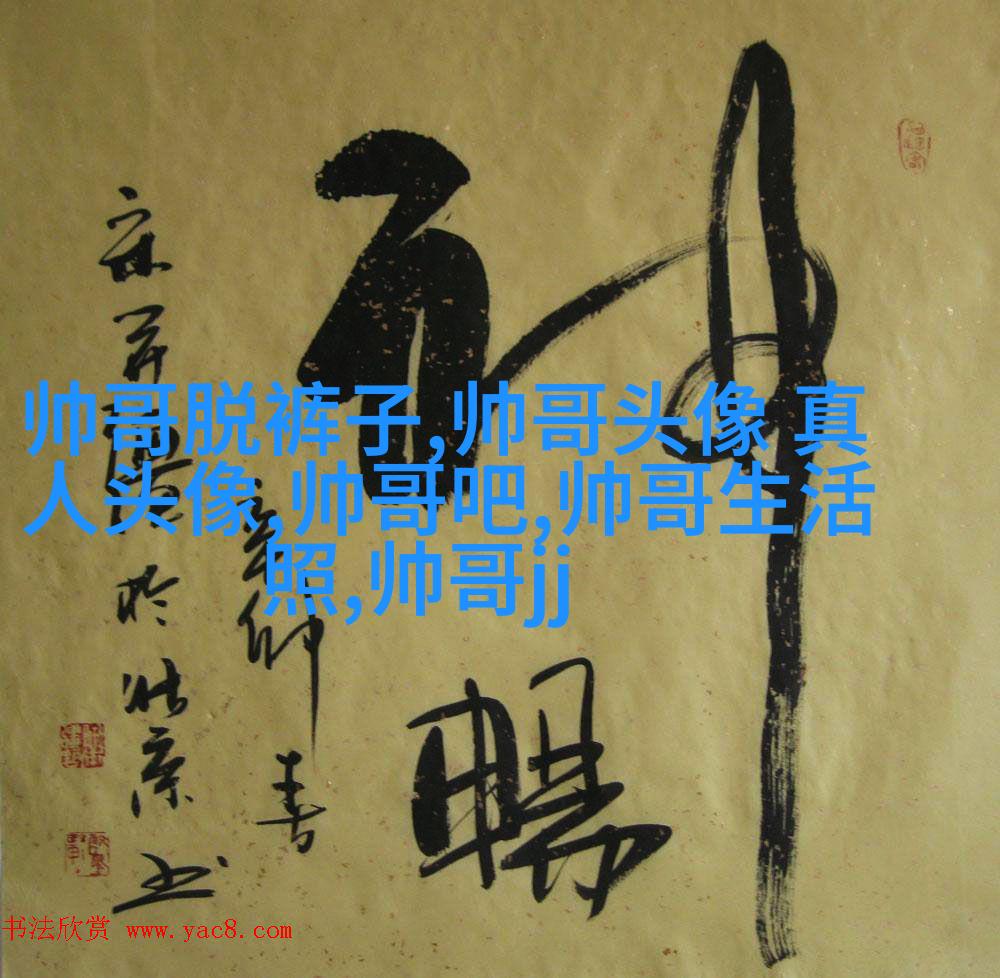 神暢
辛卯春
於北京书
帅哥脱裤子,帅哥头像 真
人头像,帅哥吧,帅哥生活
照,帅哥jj
书法欣赏 www.yac8.com